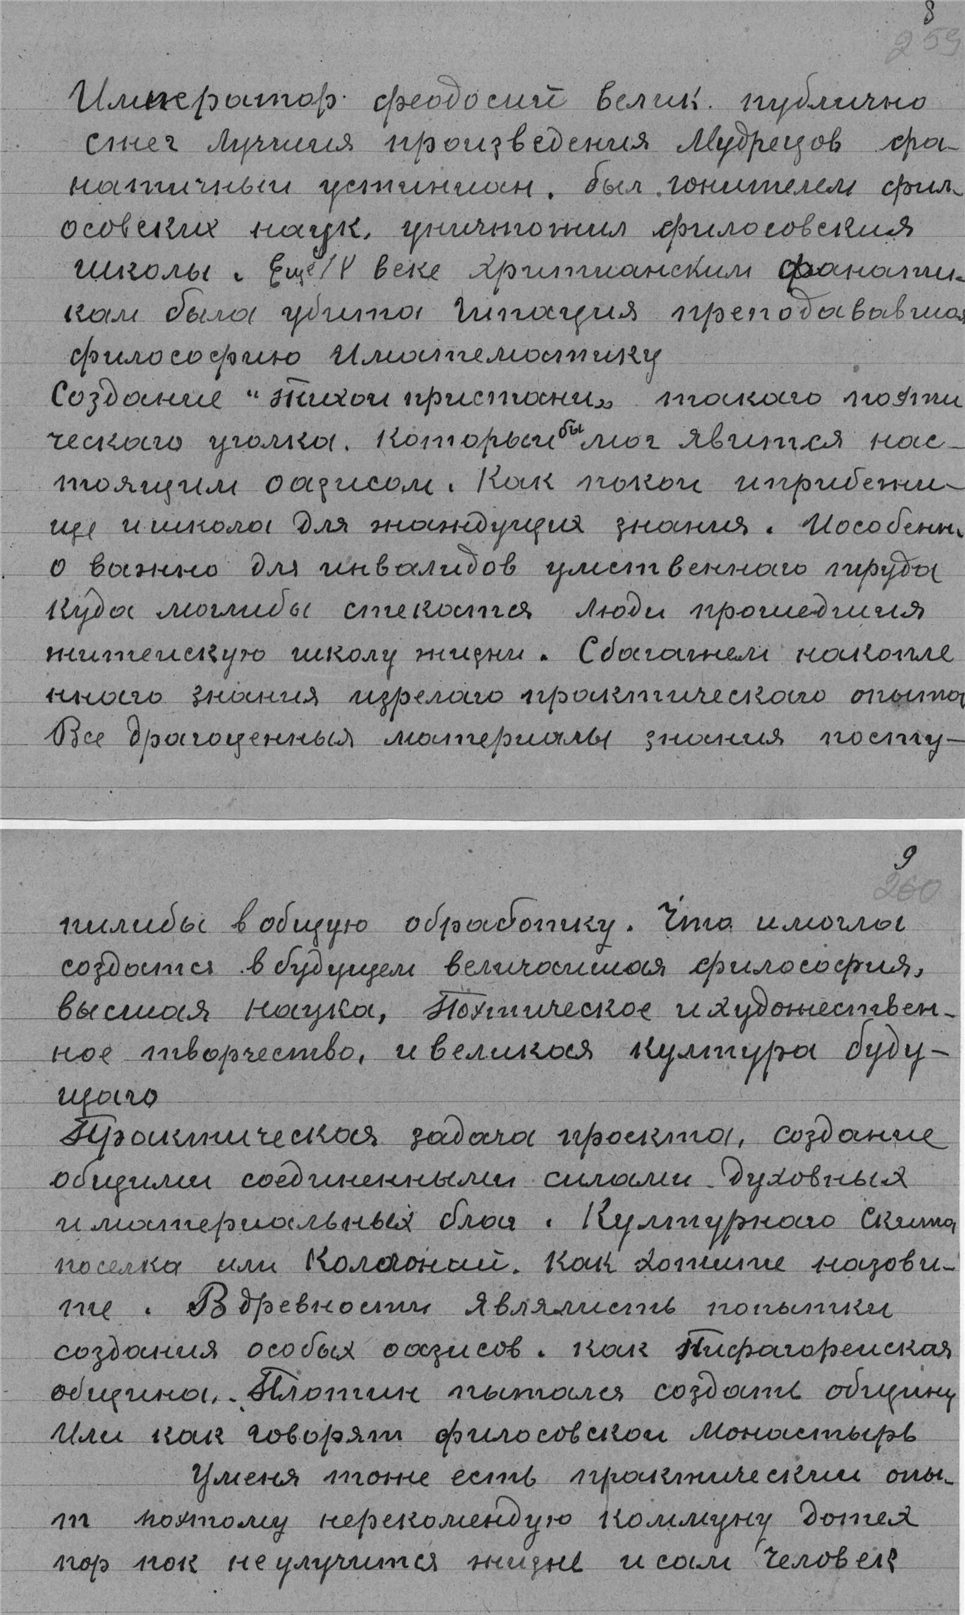 8
259
Император феодосий велик. публично
сжег Лучшия произведения Мудрецов фа-
натичныи устиниан. был гонителем фил-
осовских наук, уничтожил философския
школы. Ещё IV веке христианским фанати-
кам была убита Гипация преподававшая
философию Иматематику
Создание "Тихои пристани" такаго поэти
ческаго уголка. Которыи бы мог явится нас-
тоящим оазисом. Как покои иприбежи-
ще ишкола для жаждущих знания. Иособенн.
о важно для инвалидов умственнаго труда
Куда моглибы стекатся Люди прошедшия
житеискую школу жизни. Сбагажем накопле
ннаго знания изрелаго практическаго опыта
Все драгоценныя материалы знания посту-
9
260
пилибы вобщую обработку. Что имогла
создатся вбудущем величаишая философия,
высшая наука, Поэтическое ихудожествен-
ное творчество, ивеликая культура буду-
щаго
Практическая задача проекта, создание
общими соединенными силами духовных
иматериальных благ. Культурнаго Скита
поселка или Колоний. как хотите назови-
те. Вдревности являлисть попытки
создания особых оазисов. как Пифагореиская
община. Плотин пытался создать общину
Или как говорят философскои Монастырь
Уменя тоже есть практическии опы-
т поэтому нерекомендую коммуну дотех
пор пок неулучится жизнь исам человек